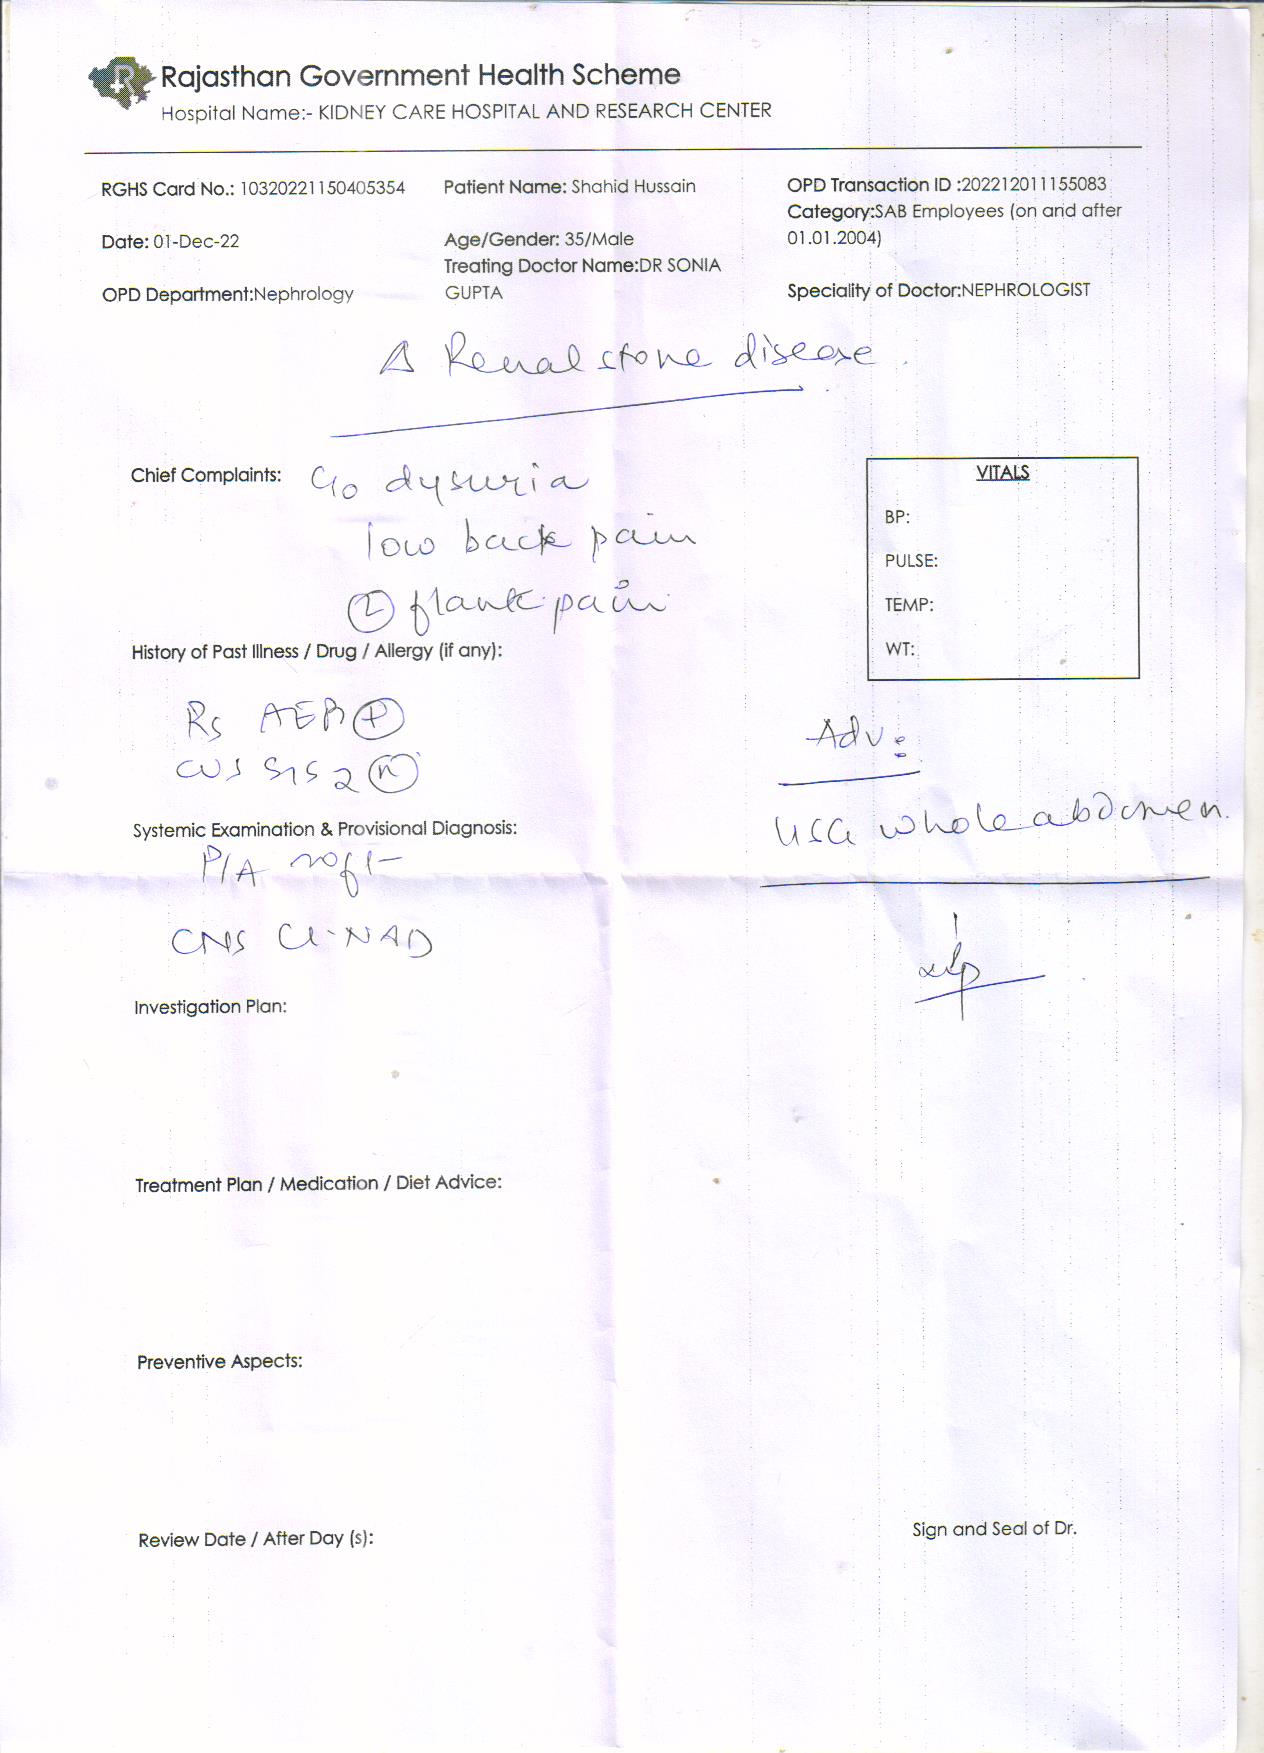 Rajasthan Government Health Scheme
Hospital Name:- KIDNEY CARE HOSPITAL AND RESEARCH CENTER
RGHS Card No.: 10320221150405354
Patient Name: Shahid Hussain
OPD Transaction ID :202212011155083
Category:SAB Employees (on and after
01.01.2004)
Date: 01-Dec-22
Age/Gender: 35/Male
Treating Doctor Name:DR SONIA
GUPTA
OPD Department:Nephrology
Speciality of Doctor:NEPHROLOGIST
Δ Renal stone disease.
Chief Complaints: C/o dysuria
low back pain
Ⓛ flank pain
VITALS
BP:
PULSE:
TEMP:
WT:
History of Past Illness / Drug / Allergy (if any):
RS AEB ⊕
CVS S1S2 ⓝ
Adv:
USG whole abdomen.
Systemic Examination & Provisional Diagnosis:
P/A soft
CNS Cl-NAD
Investigation Plan:
Treatment Plan / Medication / Diet Advice:
Preventive Aspects:
Review Date / After Day (s):
Sign and Seal of Dr.